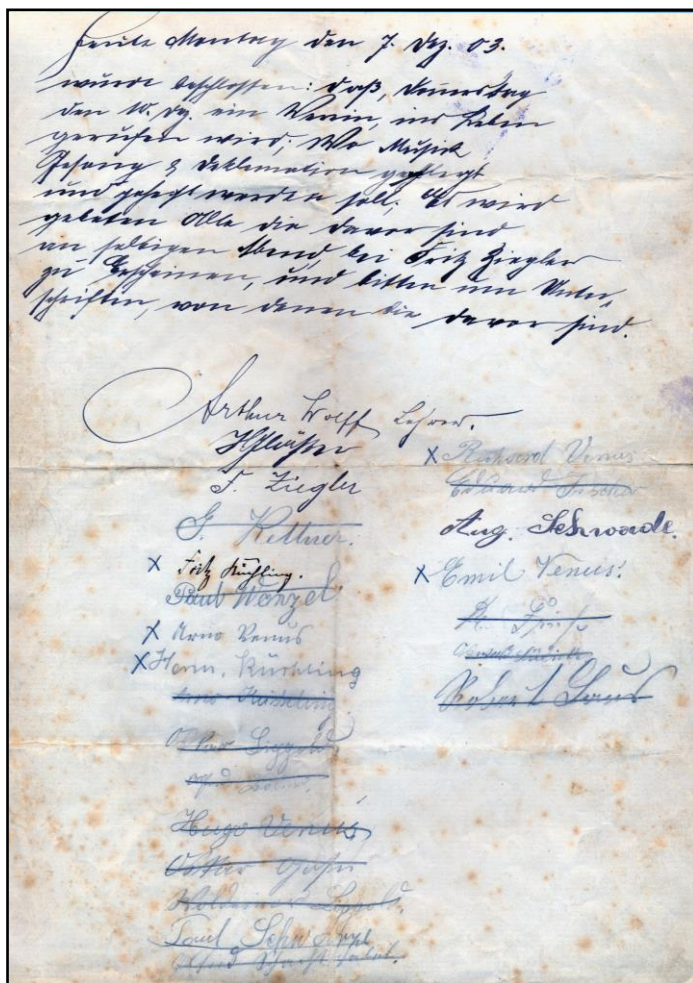 Heute Montag den 7. Dez. 03.
wurde beschlossen: daß, Donnerstag
den 10. Dez. ein Verein, ins Leben
gerufen wird; Wo Musick
Gesang & Deklamation gepflegt
und gehegt werden soll; Es wird
gebeten Alle die davor sind
an selbigen Abend, bei Fritz Ziegler
zu Erscheinen, und bitten um Unter,
schriften, von denen die davor sind.
Arthur Wolff Lehrer.
F. Ziegler
G. Kettner.
x Fritz Küchling.
Paul Wenzel
x Arno Venus
x Herm. Küchling
Arno Küchling
Oskar
Hugo Venus
Oskar
Paul
x Richard Venus
Eduard Fischer
Aug. Schwade.
x Emil Venus.
Robert